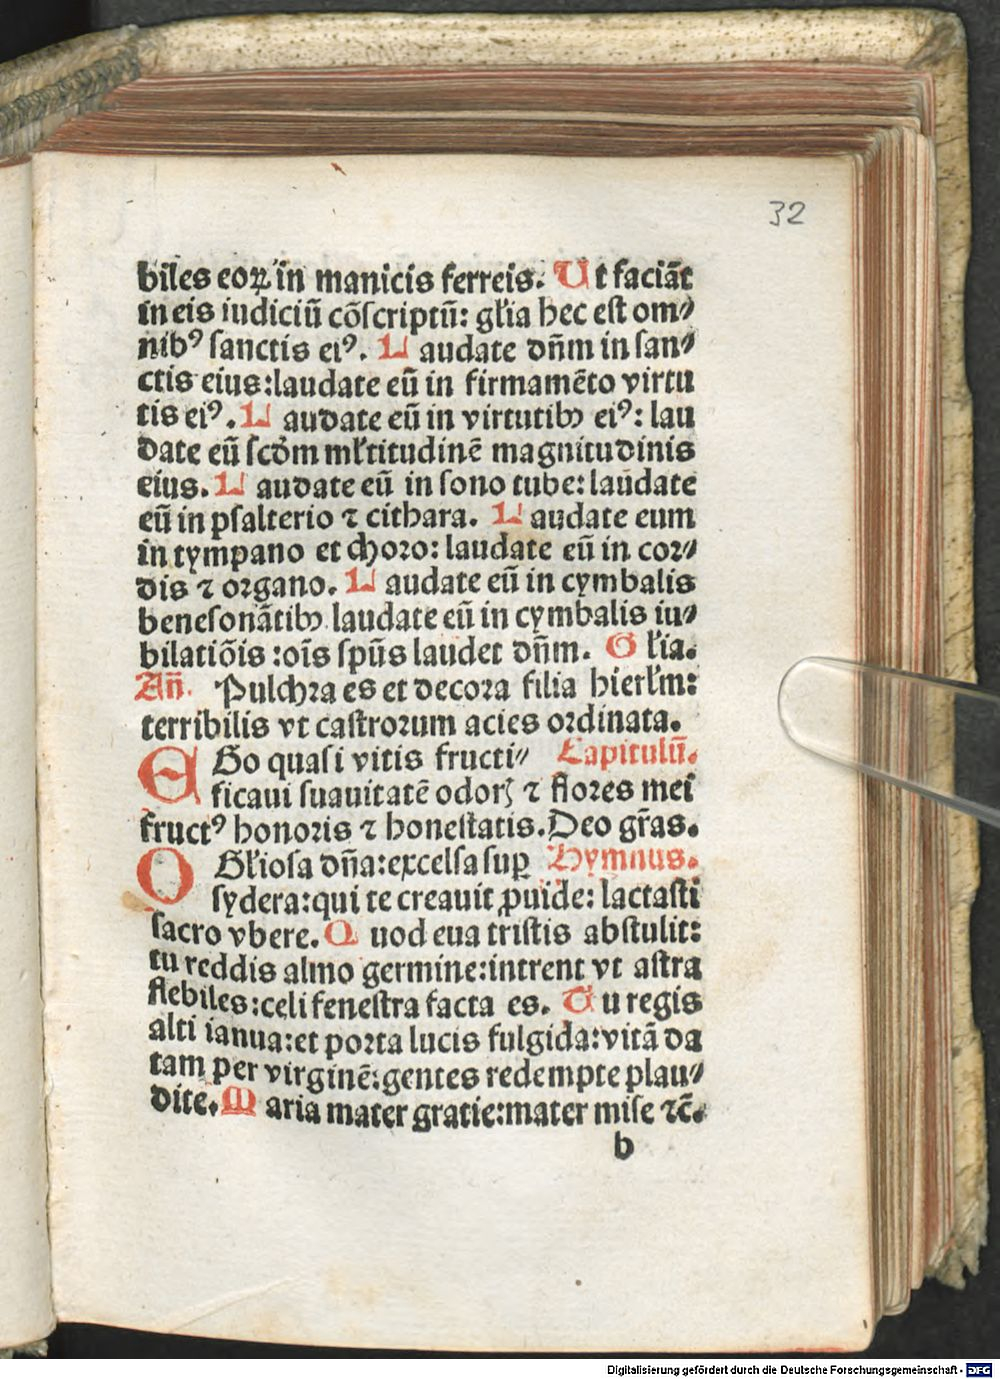 32
biles eoꝝ in manicis ferreis. Ut faciāt
in eis iudiciū cōſcriptū: gl̄ia hec eſt om⸗
nibꝰ ſanctis eiꝰ. Laudate dn̄m in ſan⸗
ctis eius:laudate eū in firmamēto virtu
tis eiꝰ. Laudate eū in virtutibꝫ eiꝰ: lau
date eū ſcd̓m ml̓titudinē magnitudinis
eius. Laudate eū in ſono tube: laudate
eū in pſalterio ⁊ cithara. Laudate eum
in tympano et choꝛo: laudate eū in coꝛ⸗
dis ⁊ oꝛgano. Laudate eū in cymbalis
beneſonātibꝫ laudate eū in cymbalis iu⸗
bilatiōis :oīs ſpūs laudet dn̄m. Gl̓ia.
An̄. Pulchꝛa es et decoꝛa filia hierl̓m:
terribilis vt caſtroꝛum acies oꝛdinata.
EGo quaſi vitis fructi⸗ Capitulū.
ficaui ſuauitatē odoꝛꝭ ⁊ floꝛes mei
fructꝰ honoꝛis ⁊ honeſtatis. Deo gr̄as.
OGl̓ioſa dn̄a:excelſa ſuꝑ Hymnus.
ſydera:qui te creauit ꝓuide: lactaſti
ſacro vbere. Quod eua triſtis abſtulit:
tu reddis almo germine:intrent vt aſtra
flebiles:celi feneſtra facta es. Tu regis
alti ianua:et poꝛta lucis fulgida:vitā da
tam per virginē:gentes redempte plau⸗
dite. Maria mater gratie:mater miſe ⁊c̄.
b
Digitalisierung gefördert durch die Deutsche Forschungsgemeinschaft - DFG